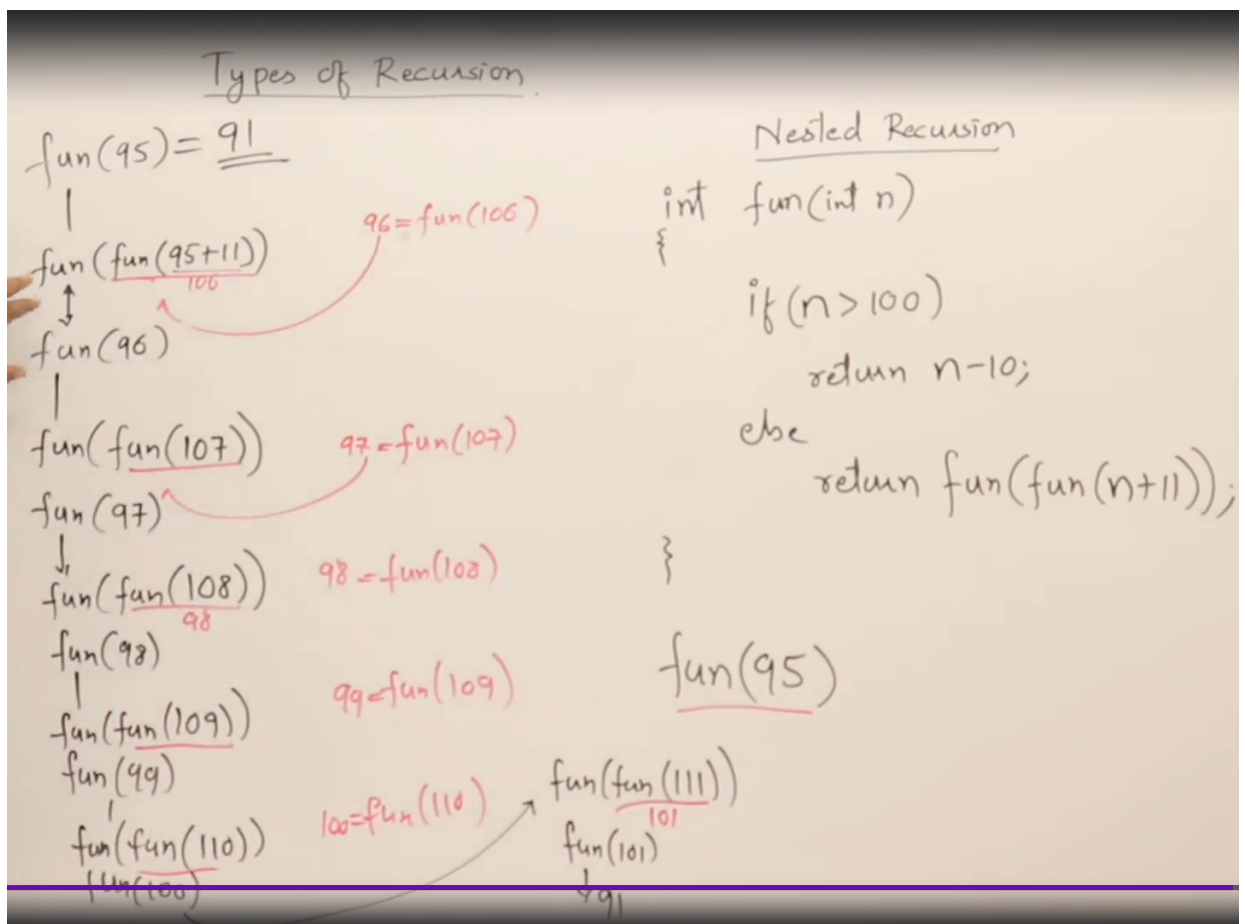 Types of Recursion.
fun(95) = 91
fun(fun(95+11))
106
96=fun(106)
fun(96)
fun(fun(107))
97=fun(107)
fun(97)
fun(fun(108))
98
98=fun(108)
fun(98)
fun(fun(109))
99=fun(109)
fun(99)
fun(fun(110))
100=fun(110)
fun(100)
fun(fun(111))
101
fun(101)
91
Nested Recursion
int fun(int n)
{
if(n>100)
return n-10;
else
return fun(fun(n+11));
}
fun(95)